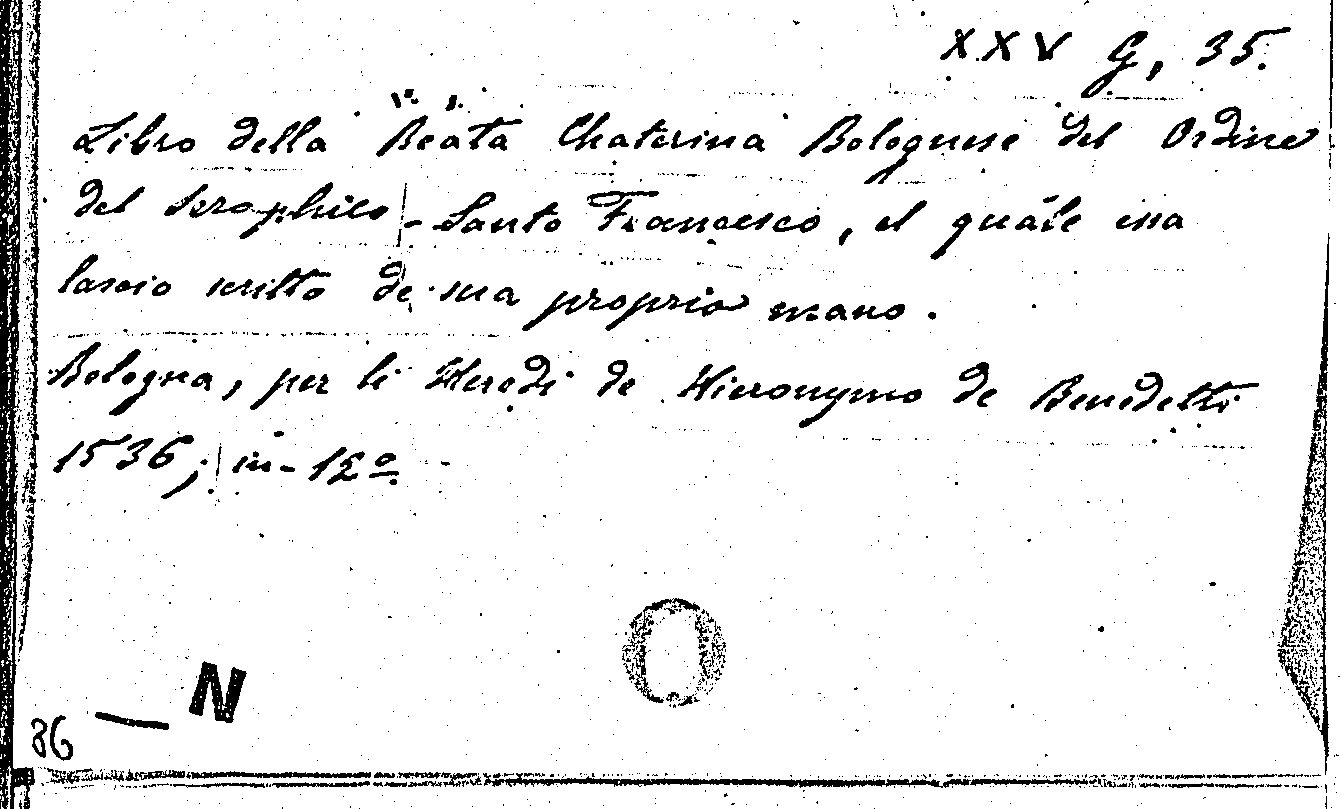 XXV G, 35.
Libro della Beata Chaterina Bolognese del Ordine
del Seraphico Santo Francesco, el quale essa
lascio scritto de sua propria mano.
Bologna, per li Heredi de Hieronymo de Benedetti
1536; in-12º.
N
86